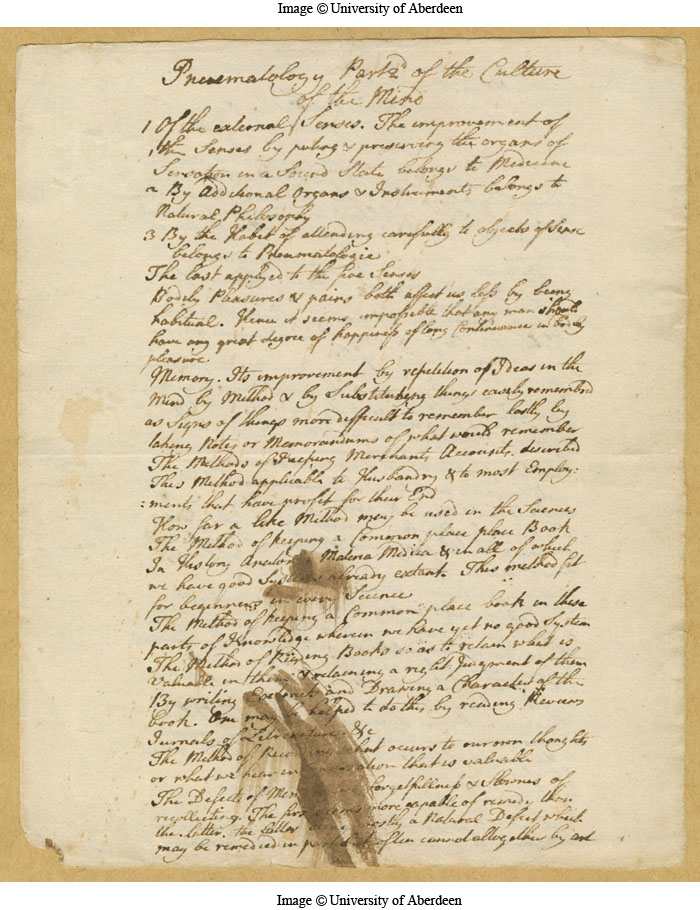 Image © University of Aberdeen
Pneumatology Part 2d of the Culture
of the Mind
1 Of the external Senses. The improvement of
the Senses by & preserving the organs of
Sensation in a Sound State belongs to Medicine
2 By Additional Organs & Instruments belongs to
Natural Philosophy
3 By the Habit of attending carefully to objects of Sense
belongs to Pneumatologie
The last applyed to the five Senses
Bodily Pleasures & pains both affect us less by being
habitual. Hence it seems impossible that any man should
have any great degree of happiness of long Continuance in bodily
pleasure
Memory. Its improvement by repetition of Ideas in the
Mind by Method & by Substituting things easily remembred
as Signs of things more difficult to remember lastly by
taking Notes or Memorandums of what would remember
The Methods of Keeping Merchants Accounts. described
This Method applicable to Husbandry & to most Employ:
:ments that have profit for their End
How far a like Method may be used in the Sciences
The Method of keeping a Common place place Book
In History Materia Medica & in all of which
we have good already extant. This method fit
for beginners in every Science
The Method of keeping a Common place book in these
parts of Knowledge wherein we have yet no good System
The Method of Books so as to retain what is
valuable in them & retaining a right Judgment of them
By writing and Drawing a Character of the
book. One may helped to do this by reading Reviews
Jurnals of Literature &c
The Method of what occurs to our own thoughts
or what we hear in that is valuable
The Defects of forgetfullness & Slowness of
recollecting. The first more capable of remedy than
the latter. the latter a Natural Defect which
may be remedied in part but often cannot altogether by art
Image © University of Aberdeen